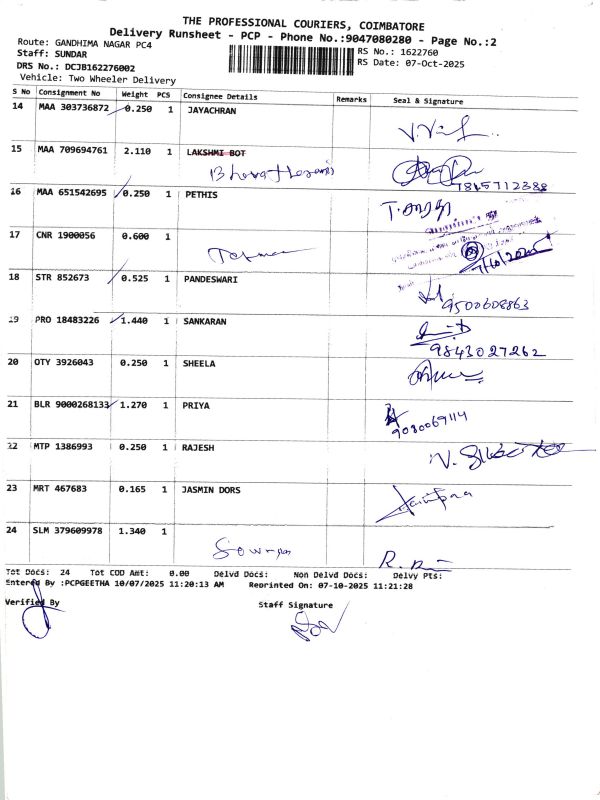 THE PROFESSIONAL COURIERS, COIMBATORE
Delivery Runsheet - PCP - Phone No.:9047080280 - Page No.:2
Route: GANDHIMA NAGAR PC4
RS No.: 1622760
Staff: SUNDAR
RS Date: 07-Oct-2025
DRS No.: DCJB162276002
Vehicle: Two Wheeler Delivery
S No Consignment No Weight PCS Consignee Details Remarks Seal & Signature
14 MAA 303736872 0.250 1 JAYACHRAN
15 MAA 709694761 2.110 1 LAKSHMI BOT
7845712388
16 MAA 651542695 0.250 1 PETHIS
17 CNR 1900056 0.600 1
7/10/2025
18 STR 852673 0.525 1 PANDESWARI
9500608863
19 PRO 18483226 1.440 1 SANKARAN
9843027262
20 OTY 3926043 0.250 1 SHEELA
21 BLR 9000268133 1.270 1 PRIYA
9080069114
22 MTP 1386993 0.250 1 RAJESH
23 MRT 467683 0.165 1 JASMIN DORS
24 SLM 379609978 1.340 1
Tot Docs: 24 Tot COD Amt: 0.00 Delvd Docs: Non Delvd Docs: Delvy Pts:
Entered By :PCPGEETHA 10/07/2025 11:20:13 AM Reprinted On: 07-10-2025 11:21:28
Verified By
Staff Signature